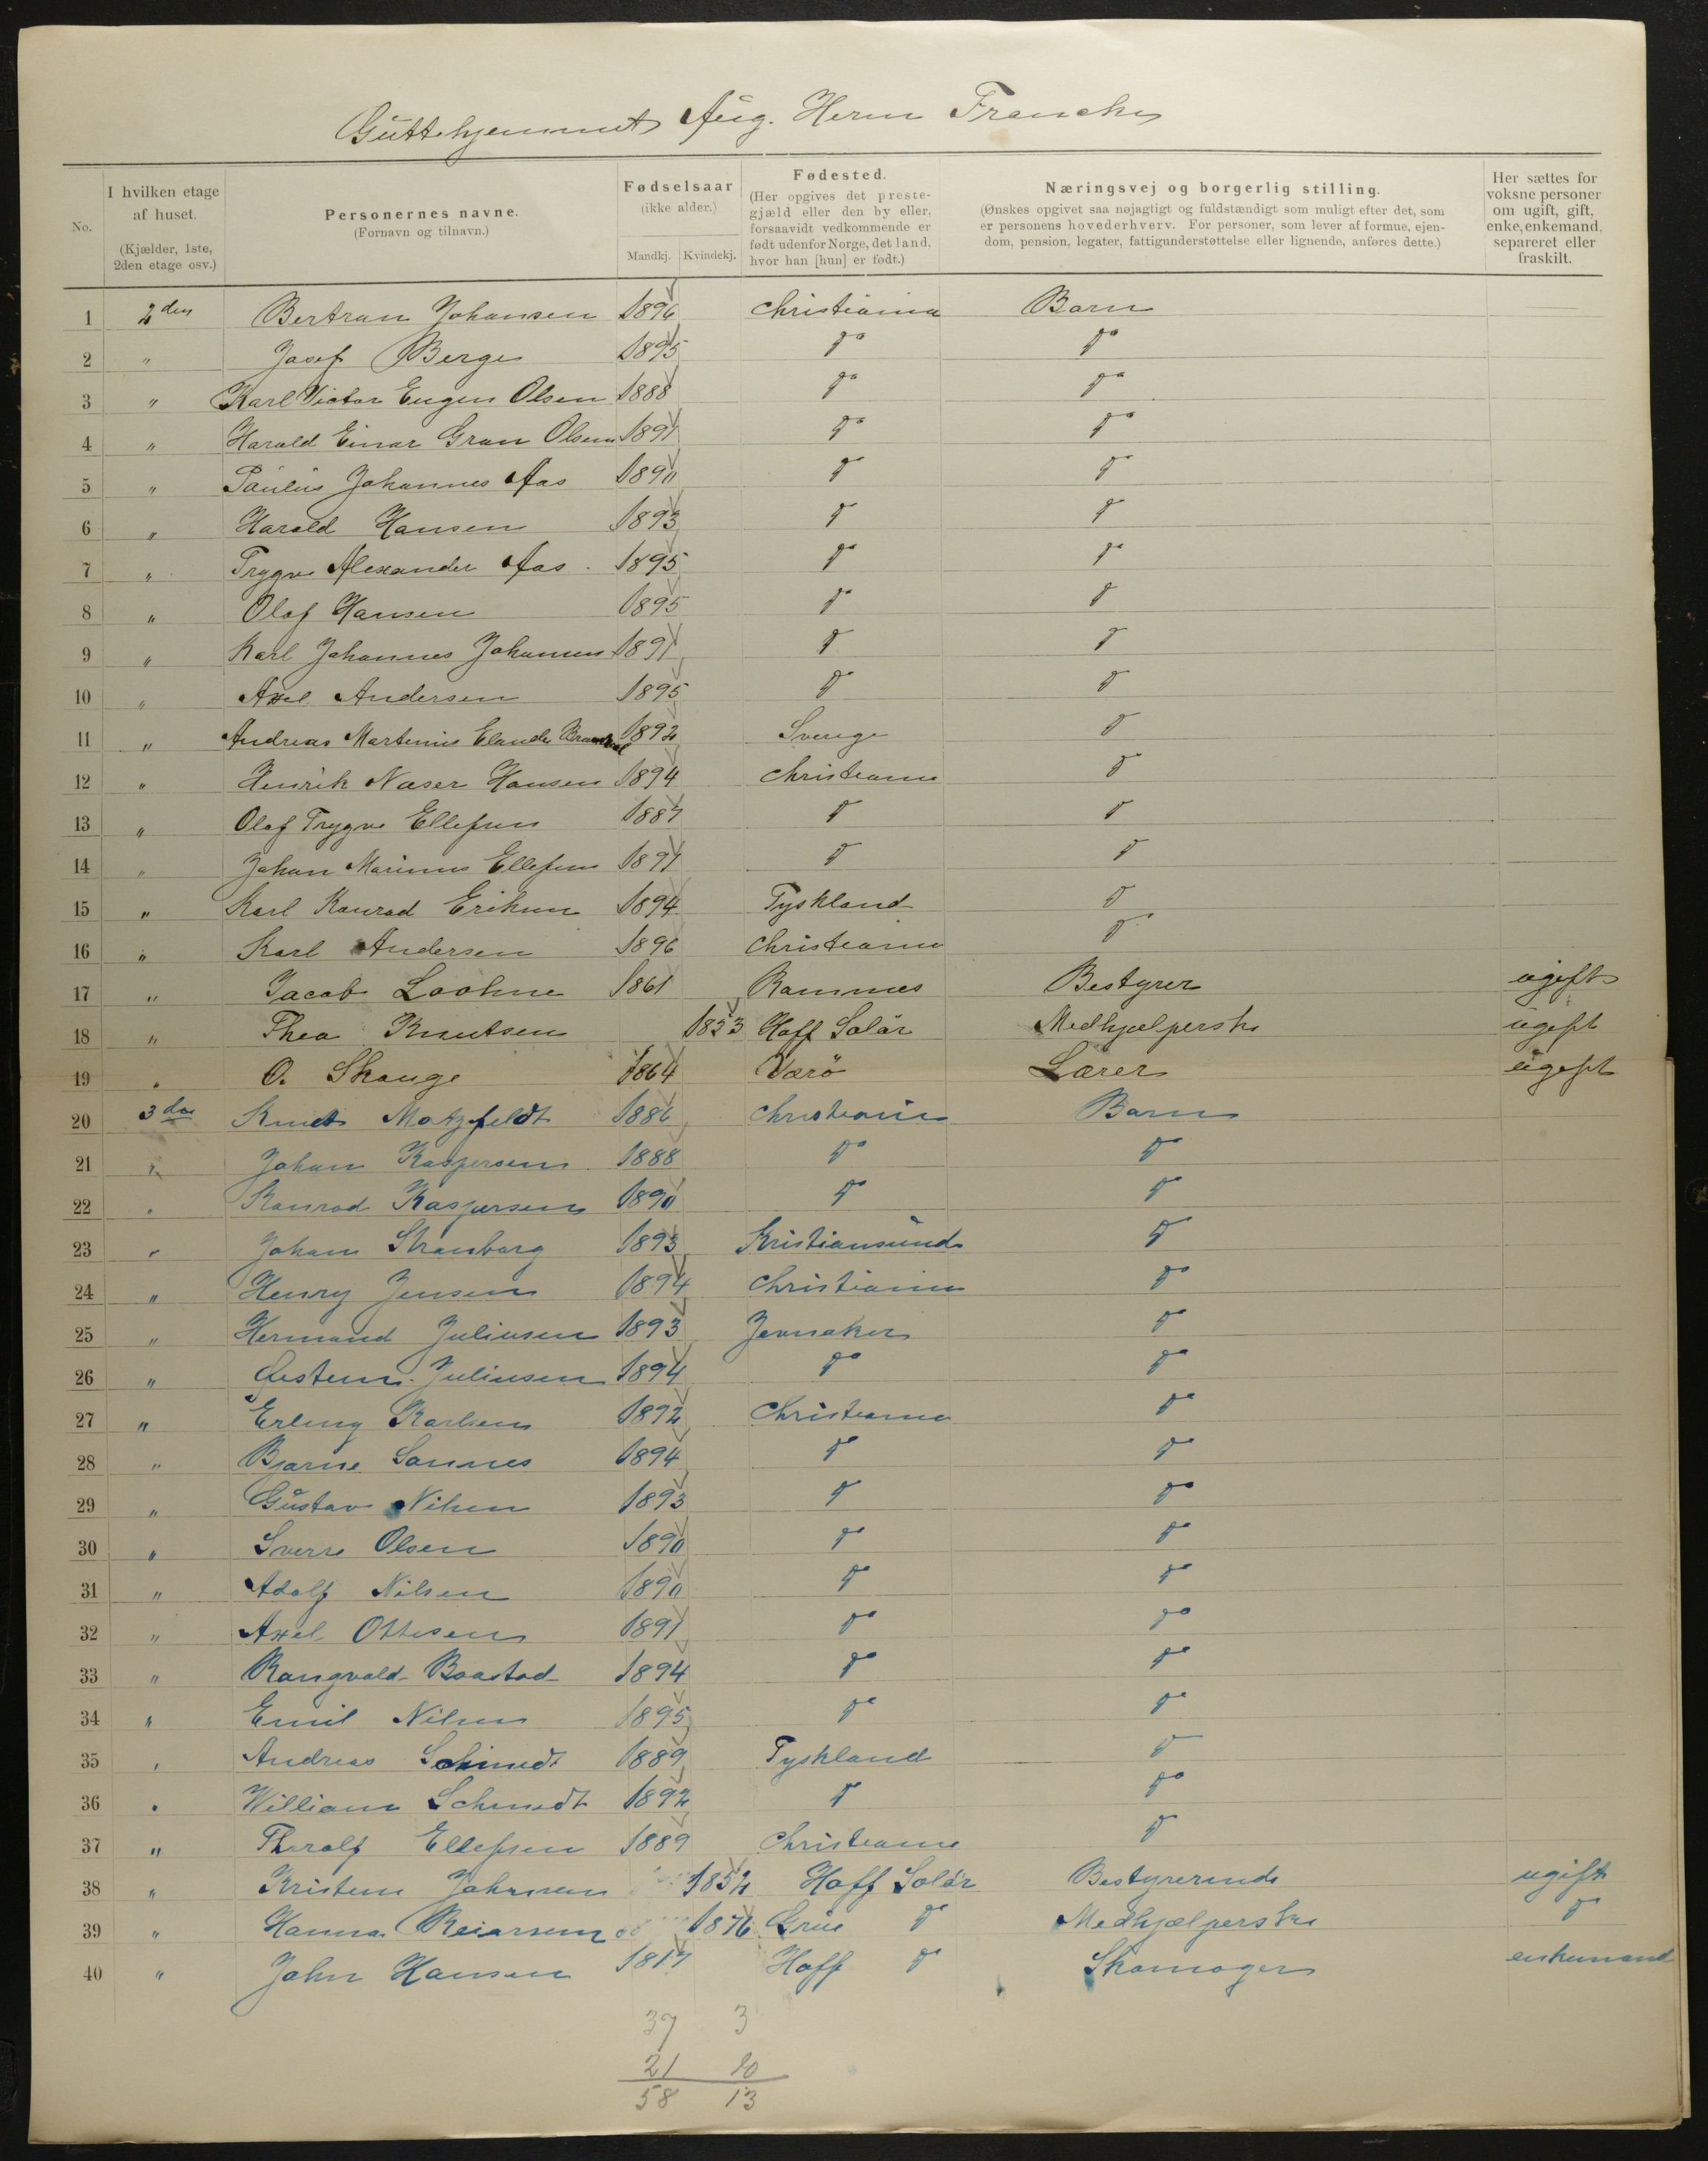 Guttehjemmet Aug. Herm Franckes
No.
I hvilken etage af huset. (Kjælder, 1ste, 2den etage osv.)
Personernes navne. (Fornavn og tilnavn.)
Fødselsaar (ikke alder.) Mandkj. Kvindekj.
Fødested. (Her opgives det prestegjæld eller den by eller, forsaavidt vedkommende er født udenfor Norge, det land, hvor han [hun] er født.)
Næringsvej og borgerlig stilling. (Ønskes opgivet saa nøjagtigt og fuldstændigt som muligt efter det, som er personens hovederhverv. For personer, som lever af formue, ejendom, pension, legater, fattigunderstøttelse eller lignende, anføres dette.)
Her sættes for voksne personer om ugift, gift, enke, enkemand, separeret eller fraskilt.
1 2den Bertran Johansen 1896 Christiania Barn
2 " Josef Berge 1895 do do
3 " Karl Victor Eugen Olsen 1888 do do
4 " Harald Einar Gran Olsen 1891 do do
5 " Paulus Johannes Aas 1890 do do
6 " Harald Hansen 1893 do do
7 " Trygve Alexander Aas 1895 do do
8 " Olaf Hansen 1895 do do
9 " Karl Johannes Johansen 1891 do do
10 " Axel Andersen 1895 do do
11 " Andreas Martinius Elander 1892 Sverige do
12 " Henrik Næser Hansen 1894 Christiania do
13 " Olaf Trygve Ellefsen 1887 do do
14 " Johan Marinus Ellefsen 1891 do do
15 " Karl Konrad Eriksen 1894 Tyskland do
16 " Karl Andersen 1896 Christiania do
17 " Jacob Loohne 1861 Ramnæs Bestyrer ugift
18 " Thea Knutsen 1853 Hoff Solør Medhjælperske ugift
19 " O. Skauge 1864 Værø Lærer ugift
20 3die Knut Motzfeldt 1886 Christiania Barn
21 " Johan Kaspersen 1888 do do
22 " Konrad Kaspersen 1890 do do
23 " Johan Stranborg 1893 Kristiansund do
24 " Henry Jensen 1894 Christiania do
25 " Hermand Juliusen 1893 Jevnaker do
26 " Juliusen 1894 do do
27 " Erling Karlsen 1892 Christiania do
28 " Bjarne Sannes 1894 do do
29 " Gustav Nilsen 1893 do do
30 " Sverre Olsen 1890 do do
31 " Adolf Nilsen 1890 do do
32 " Axel Ottesen 1891 do do
33 " Rangvald Baastad 1894 do do
34 " Emil Nilsen 1895 do do
35 " Andreas Schmidt 1889 Tyskland do
36 " William Schmidt 1892 do do
37 " Thoralf Ellefsen 1889 Christiania do
38 " Kristine Johnsen 1852 Hoff Solør Bestyrerinde ugift
39 " Hanna Reiersen 1876 Grue do Medhjælperske do
40 " John Hansen 1817 Hoff do Skomager enkemand
37 3
21 10
58 13